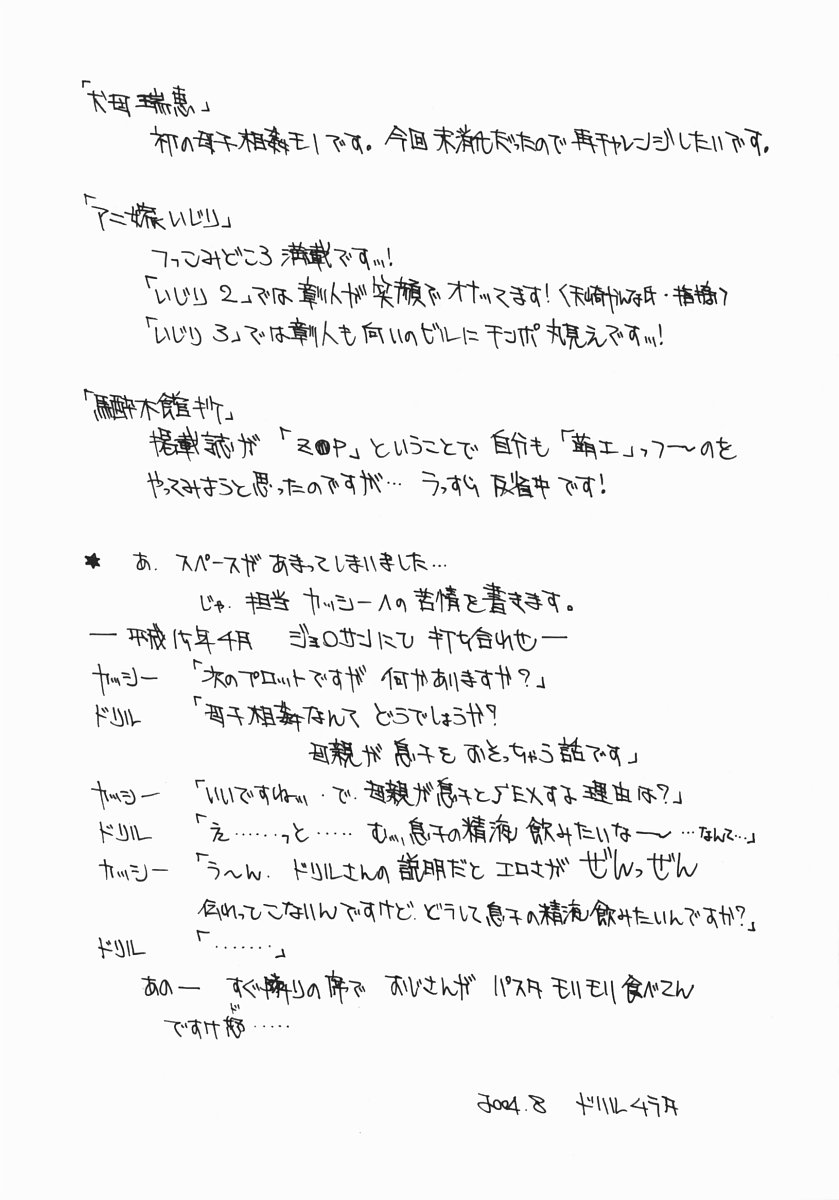 「犬母瑞恵」
初の母子相姦モノです。今回 未消化だったので 再チャレンジしたいです。
「アニ嫁いじり」
つっこみどころ 満載ですッ!
「いじり2」では 彰人が 笑顔で オナッてます!(天崎かんな氏・指摘)
「いじり3」では彰人も 向いのビルに チンポ 丸見えですッ!
「馬酔木館
掲載誌が 「Z●P」ということで 自分も「萌エ」っつ〜のを
やってみようと思ったのですが… うっすら 反省中です!
★ あ. スペースが あまってしまいました…
じゃ. 担当 カッシーへの 苦情を 書きます。
— 平成15年4月 ジョ○サンにて 打ち合わせ —
カッシー 「次のプロットですが 何かありますか?」
ドリル 「母子相姦なんて どうでしょうか?
母親が 息子を おそっちゃう話です」
カッシー 「いいですねッ・で. 母親が息子とSEXする 理由は?」
ドリル 「え……っと…… むッ,息子の精液 飲みたいな〜 …なんて…」
カッシー 「う〜ん. ドリルさんの 説明だと エロさが ぜんっぜん
伝わってこないんですけど. どうして息子の精液 飲みたいんですか?」
ドリル 「………」
あの— すぐ隣りの席で おじさんが パスタ モリモリ 食べてん
ですけど……
2004.8 ドリルムラタ